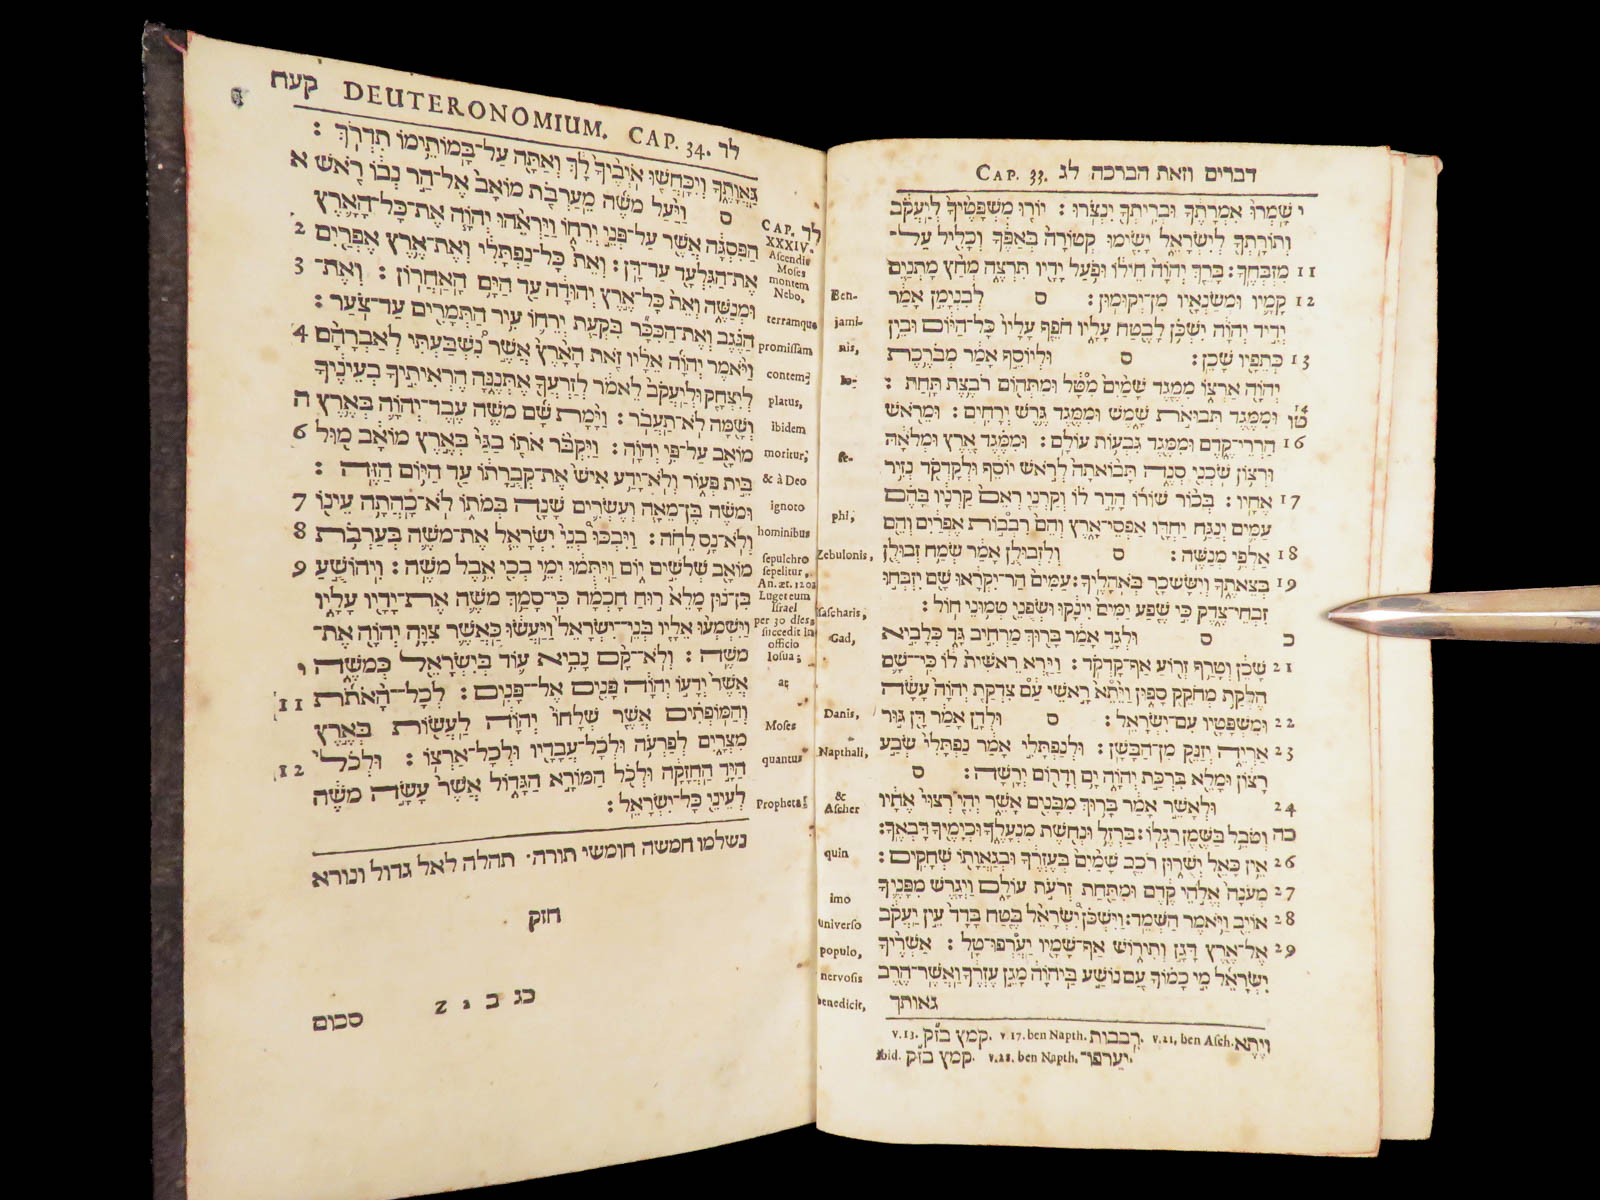 דברים וזאת הברכה לג CAP. 33.
י שָׁמְרוּ אִמְרָתֶךָ וּבְרִיתְךָ יִנְצֹרוּ׃ יוֹרוּ מִשְׁפָּטֶיךָ לְיַעֲקֹב
וְתוֹרָתְךָ לְיִשְׂרָאֵל יָשִׂימוּ קְטוֹרָה בְּאַפֶּךָ וְכָלִיל עַל־
11 מִזְבְּחֶךָ׃ בָּרֵךְ יְהוָה חֵילוֹ וּפֹעַל יָדָיו תִּרְצֶה מְחַץ מָתְנַיִם
12 קָמָיו וּמְשַׂנְאָיו מִן־יְקוּמוּן׃ ס לְבִנְיָמִן אָמַר
יְדִיד יְהוָה יִשְׁכֹּן לָבֶטַח עָלָיו חֹפֵף עָלָיו כָּל־הַיּוֹם וּבֵין
13 כְּתֵפָיו שָׁכֵן׃ ס וּלְיוֹסֵף אָמַר מְבֹרֶכֶת
יְהוָה אַרְצוֹ מִמֶּגֶד שָׁמַיִם מִטָּל וּמִתְּהוֹם רֹבֶצֶת תָּחַת׃
14 טו וּמִמֶּגֶד תְּבוּאֹת שָׁמֶשׁ וּמִמֶּגֶד גֶּרֶשׁ יְרָחִים׃ וּמֵרֹאשׁ
16 הַרְרֵי־קֶדֶם וּמִמֶּגֶד גִּבְעוֹת עוֹלָם׃ וּמִמֶּגֶד אֶרֶץ וּמְלֹאָהּ
וּרְצוֹן שֹׁכְנִי סְנֶה תָּבוֹאתָה לְרֹאשׁ יוֹסֵף וּלְקָדְקֹד נְזִיר
17 אֶחָיו׃ בְּכוֹר שׁוֹרוֹ הָדָר לוֹ וְקַרְנֵי רְאֵם קַרְנָיו בָּהֶם
עַמִּים יְנַגַּח יַחְדָּו אַפְסֵי־אָרֶץ וְהֵם רִבְבוֹת אֶפְרַיִם וְהֵם
18 אַלְפֵי מְנַשֶּׁה׃ ס וְלִזְבוּלֻן אָמַר שְׂמַח זְבוּלֻן
19 בְּצֵאתֶךָ וְיִשָּׂשכָר בְּאֹהָלֶיךָ׃ עַמִּים הַר־יִקְרָאוּ שָׁם יִזְבְּחוּ
זִבְחֵי־צֶדֶק כִּי שֶׁפַע יַמִּים יִינָקוּ וּשְׂפֻנֵי טְמוּנֵי חוֹל׃
כ ס וּלְגָד אָמַר בָּרוּךְ מַרְחִיב גָּד כְּלָבִיא
21 שָׁכֵן וְטָרַף זְרוֹעַ אַף־קָדְקֹד׃ וַיַּרְא רֵאשִׁית לוֹ כִּי־שָׁם
חֶלְקַת מְחֹקֵק סָפוּן וַיֵּתֵא רָאשֵׁי עָם צִדְקַת יְהוָה עָשָׂה
22 וּמִשְׁפָּטָיו עִם־יִשְׂרָאֵל׃ ס וּלְדָן אָמַר דָּן גּוּר
23 אַרְיֵה יְזַנֵּק מִן־הַבָּשָׁן׃ וּלְנַפְתָּלִי אָמַר נַפְתָּלִי שְׂבַע
רָצוֹן וּמָלֵא בִּרְכַּת יְהוָה יָם וְדָרוֹם יְרָשָׁה׃ ס
24 וּלְאָשֵׁר אָמַר בָּרוּךְ מִבָּנִים אָשֵׁר יְהִי רְצוּי אֶחָיו
כה וְטֹבֵל בַּשֶּׁמֶן רַגְלוֹ׃ בַּרְזֶל וּנְחֹשֶׁת מִנְעָלֶךָ וּכְיָמֶיךָ דָּבְאֶךָ׃
26 אֵין כָּאֵל יְשֻׁרוּן רֹכֵב שָׁמַיִם בְּעֶזְרֶךָ וּבְגַאֲוָתוֹ שְׁחָקִים׃
27 מְעֹנָה אֱלֹהֵי קֶדֶם וּמִתַּחַת זְרֹעֹת עוֹלָם וַיְגָרֶשׁ מִפָּנֶיךָ
28 אוֹיֵב וַיֹּאמֶר הַשְׁמֵד׃ וַיִּשְׁכֹּן יִשְׂרָאֵל בֶּטַח בָּדָד עֵין יַעֲקֹב
29 אֶל־אֶרֶץ דָּגָן וְתִירוֹשׁ אַף־שָׁמָיו יַעַרְפוּ־טָל׃ אַשְׁרֶיךָ
יִשְׂרָאֵל מִי כָמוֹךָ עַם נוֹשַׁע בַּיהוָה מָגֵן עֶזְרֶךָ וַאֲשֶׁר־חֶרֶב
גאותך
Ben-
jami-
nis,
Io-
se-
phi,
Zebulonis,
Isascharis,
Gad,
Danis,
Napthali,
&
Ascher
quin
imo
universo
populo,
nervosis
benedicit,
v. 13. קמץ בז״ק. v. 17. ben Napth. רְבבות. v. 21, ben Asch. וַיֵּתֶא
ibid. קמץ בז״ק. v. 28. ben Napth. יערפו־.
קעח DEUTERONOMIUM. CAP. 34. לד
גַּאֲוָתֶךָ וְיִכָּחֲשׁוּ אֹיְבֶיךָ לָךְ וְאַתָּה עַל־בָּמוֹתֵימוֹ תִדְרֹךְ׃
ס וַיַּעַל מֹשֶׁה מֵעַרְבֹת מוֹאָב אֶל־הַר נְבוֹ רֹאשׁ א
הַפִּסְגָּה אֲשֶׁר עַל־פְּנֵי יְרֵחוֹ וַיַּרְאֵהוּ יְהוָה אֶת־כָּל־הָאָרֶץ
אֶת־הַגִּלְעָד עַד־דָּן׃ וְאֵת כָּל־נַפְתָּלִי וְאֶת־אֶרֶץ אֶפְרַיִם 2
וּמְנַשֶּׁה וְאֵת כָּל־אֶרֶץ יְהוּדָה עַד הַיָּם הָאַחֲרוֹן׃ וְאֶת־ 3
הַנֶּגֶב וְאֶת־הַכִּכָּר בִּקְעַת יְרֵחוֹ עִיר הַתְּמָרִים עַד־צֹעַר׃
וַיֹּאמֶר יְהוָה אֵלָיו זֹאת הָאָרֶץ אֲשֶׁר נִשְׁבַּעְתִּי לְאַבְרָהָם 4
לְיִצְחָק וּלְיַעֲקֹב לֵאמֹר לְזַרְעֲךָ אֶתְּנֶנָּה הֶרְאִיתִיךָ בְעֵינֶיךָ
וְשָׁמָּה לֹא־תַעֲבֹר׃ וַיָּמָת שָׁם מֹשֶׁה עֶבֶד־יְהוָה בְּאֶרֶץ ה
מוֹאָב עַל־פִּי יְהוָה׃ וַיִּקְבֹּר אֹתוֹ בַגַּי בְּאֶרֶץ מוֹאָב מוּל 6
בֵּית פְּעוֹר וְלֹא־יָדַע אִישׁ אֶת־קְבֻרָתוֹ עַד הַיּוֹם הַזֶּה׃
וּמֹשֶׁה בֶּן־מֵאָה וְעֶשְׂרִים שָׁנָה בְּמֹתוֹ לֹא־כָהֲתָה עֵינוֹ 7
וְלֹא־נָס לֵחֹה׃ וַיִּבְכּוּ בְנֵי יִשְׂרָאֵל אֶת־מֹשֶׁה בְּעַרְבֹת 8
מוֹאָב שְׁלֹשִׁים יוֹם וַיִּתְּמוּ יְמֵי בְכִי אֵבֶל מֹשֶׁה׃ וִיהוֹשֻׁעַ 9
בִּן־נוּן מָלֵא רוּחַ חָכְמָה כִּי־סָמַךְ מֹשֶׁה אֶת־יָדָיו עָלָיו
וַיִּשְׁמְעוּ אֵלָיו בְּנֵי־יִשְׂרָאֵל וַיַּעֲשׂוּ כַּאֲשֶׁר צִוָּה יְהוָה אֶת־
מֹשֶׁה׃ וְלֹא־קָם נָבִיא עוֹד בְּיִשְׂרָאֵל כְּמֹשֶׁה י
אֲשֶׁר יְדָעוֹ יְהוָה פָּנִים אֶל־פָּנִים׃ לְכָל־הָאֹתֹת 11
וְהַמּוֹפְתִים אֲשֶׁר שְׁלָחוֹ יְהוָה לַעֲשׂוֹת בְּאֶרֶץ
מִצְרָיִם לְפַרְעֹה וּלְכָל־עֲבָדָיו וּלְכָל־אַרְצוֹ׃ וּלְכֹל 12
הַיָּד הַחֲזָקָה וּלְכֹל הַמּוֹרָא הַגָּדוֹל אֲשֶׁר עָשָׂה מֹשֶׁה
לְעֵינֵי כָּל־יִשְׂרָאֵל׃
CAP. לד
XXXIV.
Ascendit
Moses
montem
Nebo,
terramque
promissam
contem-
platus,
ibidem
moritur;
& à Deo
ignoto
hominibus
sepulchro
sepelitur,
An. æt. 120:
Luget eum
Israel
per 30 dies,
succedit in
officio
Iosua;
at
Moses
quantus
Propheta!
נשלמו חמשה חומשי תורה. תהלה לאל גדול ונורא
חזק
כג ב 1 z
סכום